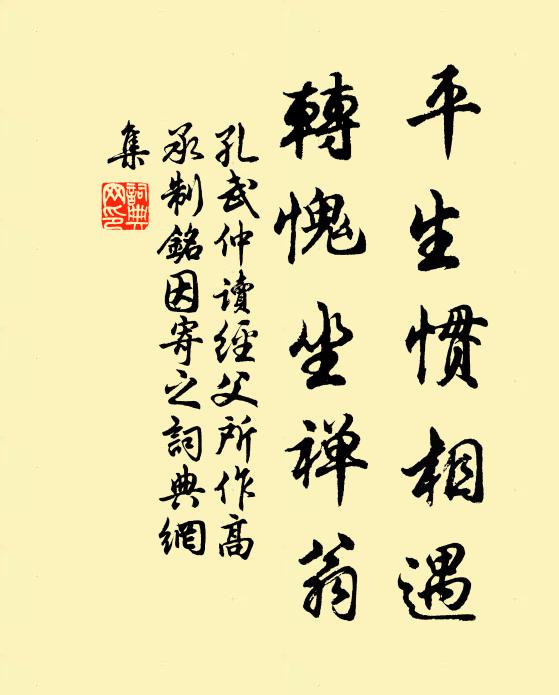 平生慣相遇
轉愧坐禅翁
孔武仲讀經父所作高
承制銘因寄之詞典網
集
詞典
网印